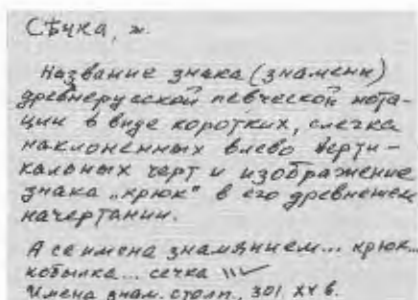 Сѣчка, ж.
Название знака (знамени)
древнерусской певческой нота-
ции в виде коротких, слегка
наклоненных влево верти-
кальных черт и изображение
знака „крюк" в его древнем
начертании.
А се имена знамянием... крюк...
кобылка... сечка
Имена знам. столп., 301. XV в.